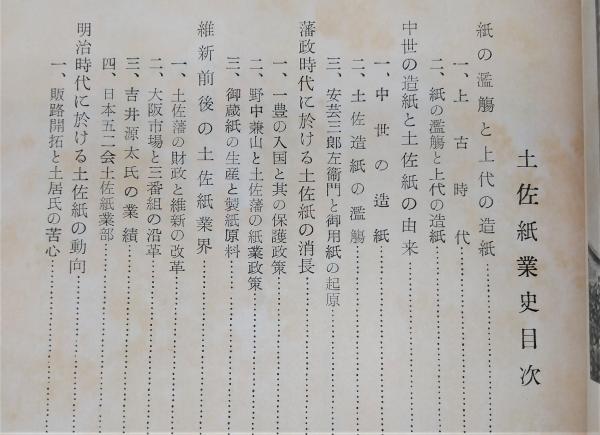 土佐紙業史目次
紙の濫觴と上代の造紙
一、上古時代
二、紙の濫觴と上代の造紙
中世の造紙と土佐紙の由来
一、中世の造紙
二、土佐造紙の濫觴
三、安芸三郎左衛門と御用紙の起原
藩政時代に於ける土佐紙の消長
一、一豊の入国と其の保護政策
二、野中兼山と土佐藩の紙業政策
三、御蔵紙の生産と製紙原料
維新前後の土佐紙業界
一、土佐藩の財政と維新の改革
二、大阪市場と三番組の沿革
三、吉井源太氏の業績
四、日本五二会土佐紙業部
明治時代に於ける土佐紙の動向
一、販路開拓と土居氏の苦心